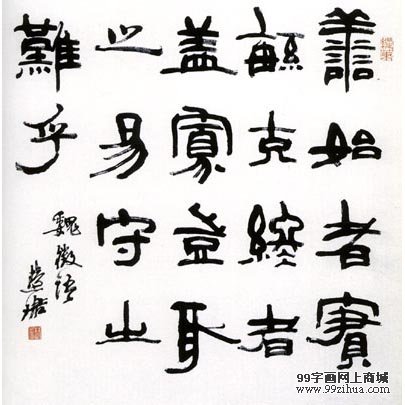 善始者實
繁克終者
蓋寡豈取
之易守之
難乎
魏徵語
99字画网上商城
www.99zihua.com